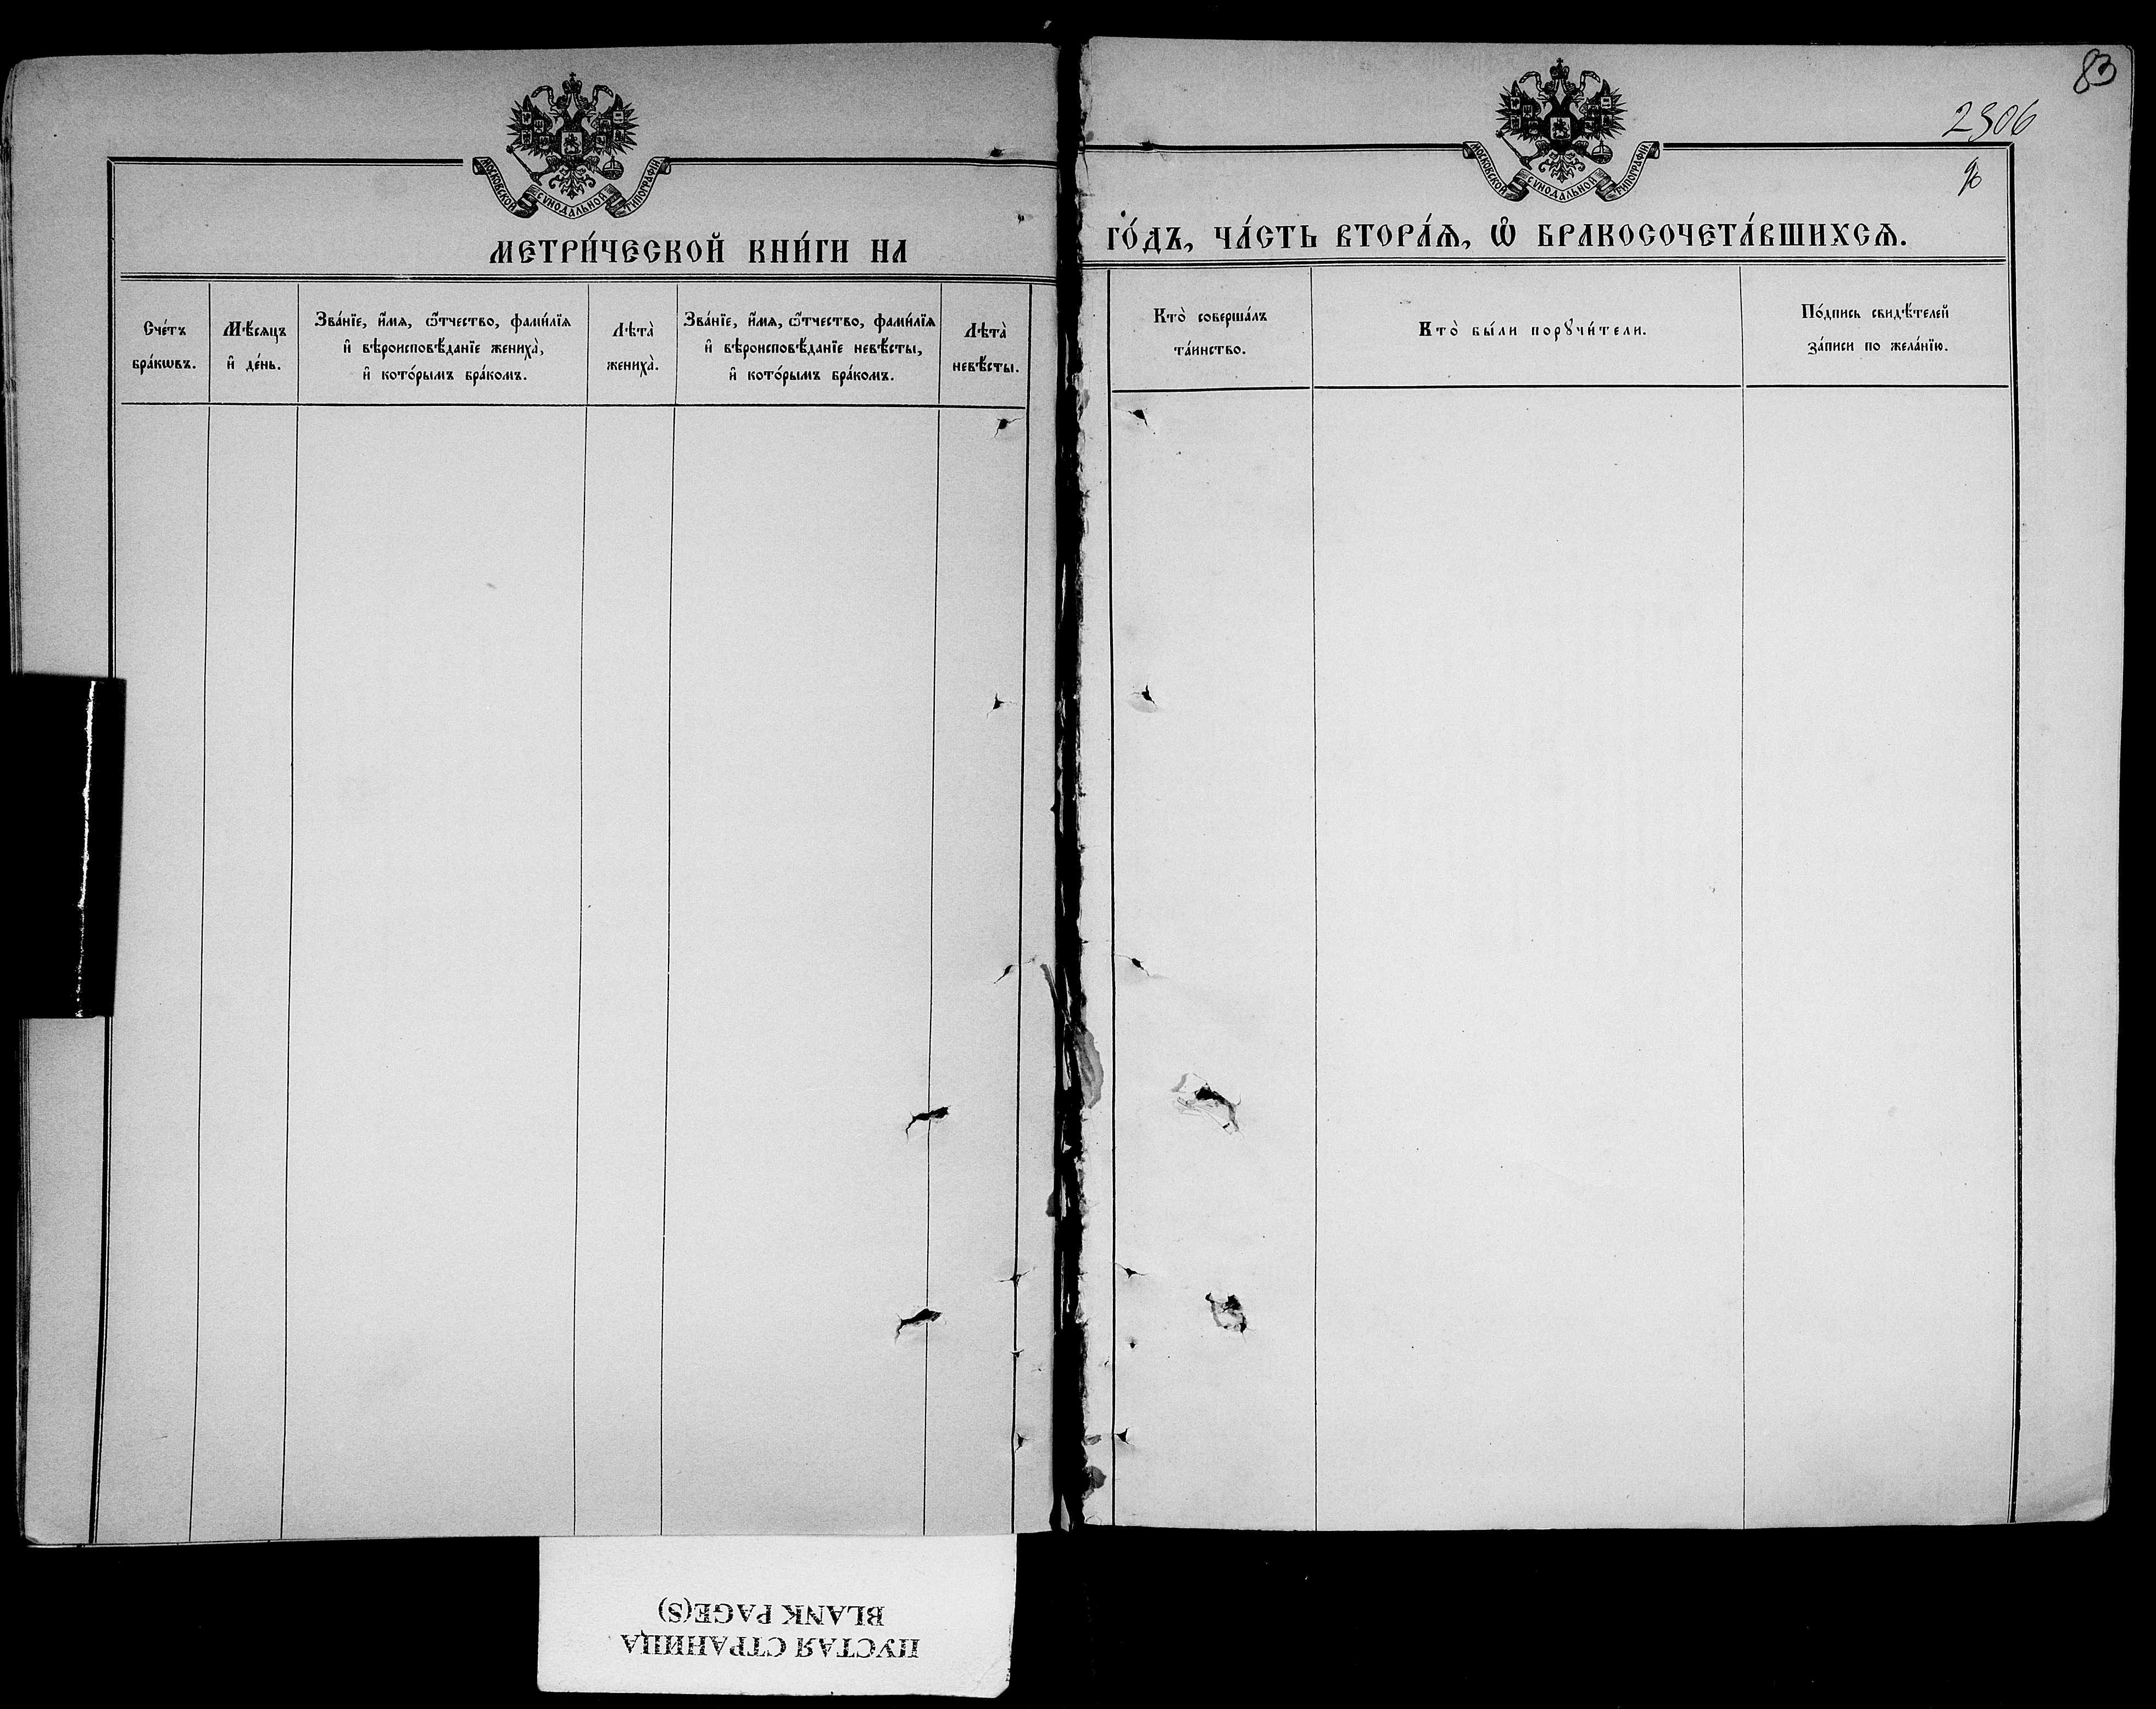 83
2306
МОСКОВСКОЙ СѴНОДАЛЬНОЙ ТИПОГРАФІИ
МОСКОВСКОЙ СѴНОДАЛЬНОЙ ТИПОГРАФІИ
МЕТРИ́ЧЕСКОЙ КНИ́ГИ НА ГО́ДЪ, ЧА́СТЬ ВТОРА́Ѧ, Ѽ БРАКОСОЧЕТА́ВШИХСѦ.
Сче́тъ
бра́кѡвъ.
Мѣ́сяцъ
и҆ де́нь.
Зва́нїе, и҆́мѧ, ѻ҆́тчество, фами́лїѧ
и҆ вѣроисповѣ́данїе жениха̀,
и҆ кото́рымъ бра́комъ.
Лѣта̀
жениха̀.
Зва́нїе, и҆́мѧ, ѻ҆́тчество, фами́лїѧ
и҆ вѣроисповѣ́данїе невѣ́сты,
и҆ кото́рымъ бра́комъ.
Лѣта̀
невѣ́сты.
Кто̀ соверша́лъ
та́инство.
Кто̀ бы́ли порꙋчи́тели.
По́дпись свидѣ́телей
за́писи по жела́нїю.
ПУСТАЯ СТРАНИЦА
BLANK PAGE(S)